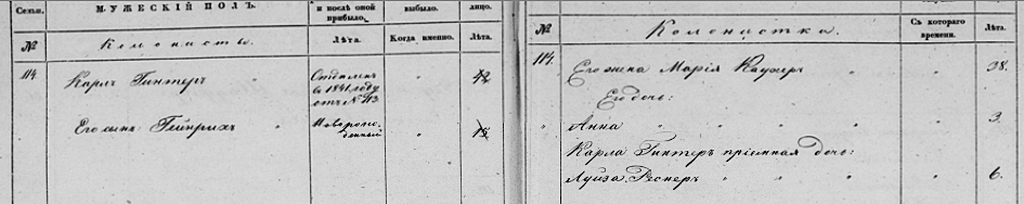 Семьи.
МУЖЕСКІЙ ПОЛЪ.
и послѣ оной
прибыло.
выбыло.
лицо.
№
Колонисты.
Лѣта.
Когда именно.
Лѣта.
114.
Карлъ Гинтеръ
Отдѣленъ
въ 1841 году
отъ № 113
42
Его сынъ Гейнрихъ
Новорож-
денный
15
№
Колонистки.
Съ котораго
времени.
Лѣта.
114.
Его жена Марія Каухеръ
38.
Его дочь:
Анна
3.
Карла Гинтеръ пріемная дочь:
Луиза Реснеръ
6.